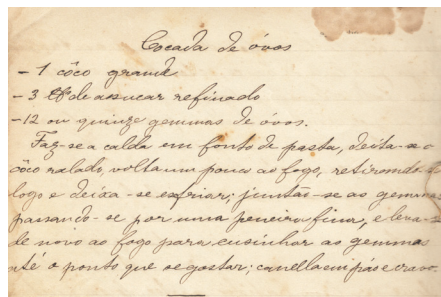 Cocada de óvos
- 1 côco grande
- 3 ℔ de assucar refinado
- 12 ou quinze gemmas de óvos.
Faz-se a calda em ponto de pasta, deita-se o
côco ralado, volta um pouco ao fogo, retirando-se
logo e deixa-se esfriar; juntão-se as gemmas
passando-se por uma peneira fina, e leva-se
de novo ao fogo para cusinhar as gemmas
até o ponto que se gostar; canella em pó e cravo.